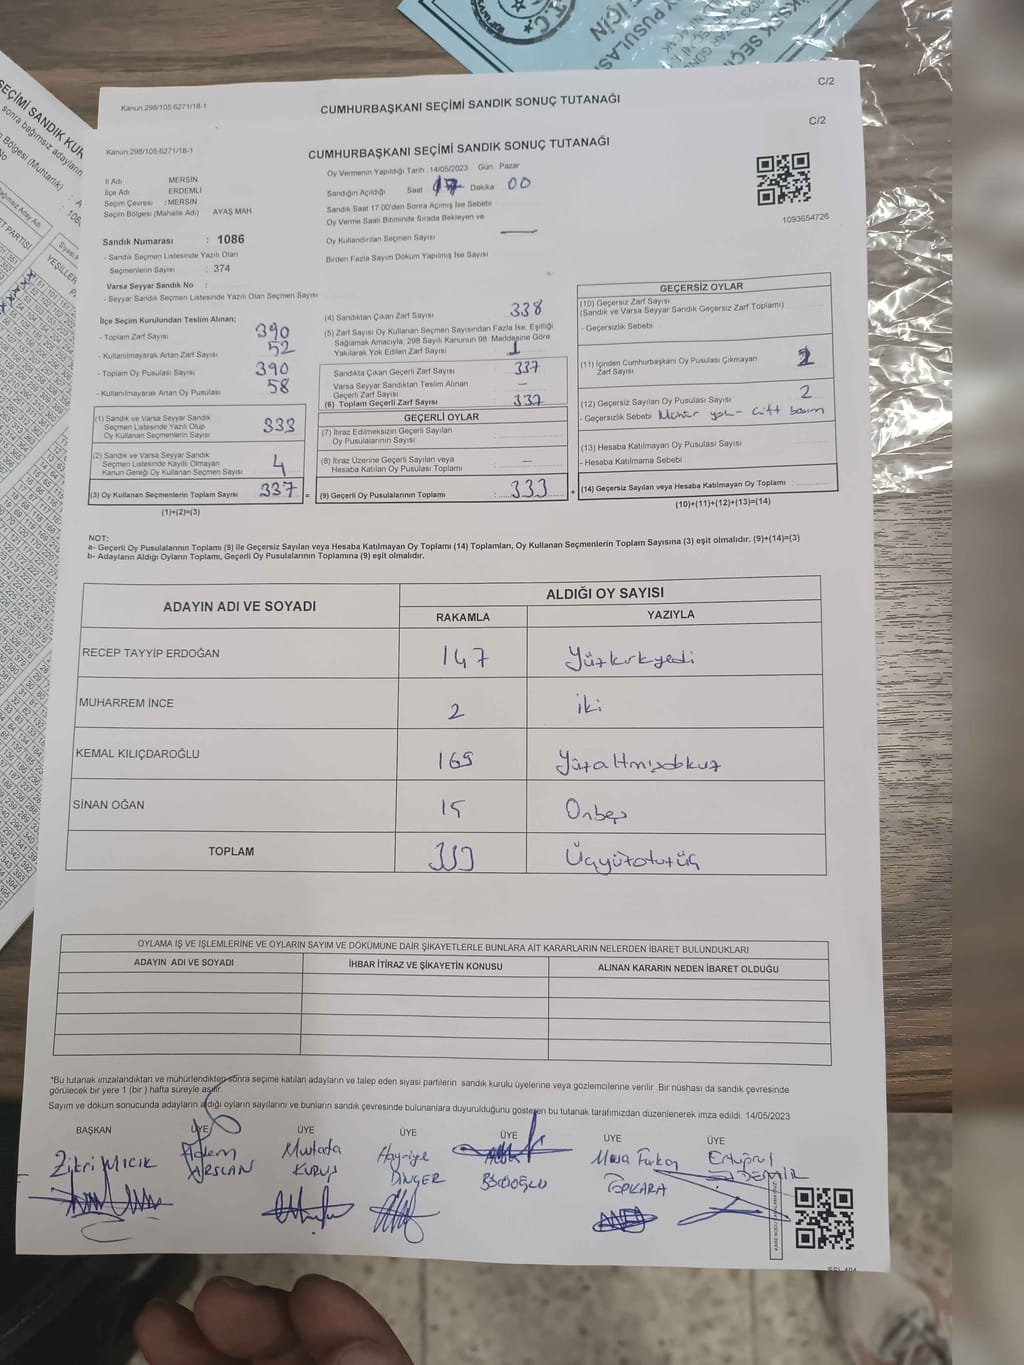 C/2
Kanun.298/105.6271/18-1
CUMHURBAŞKANI SEÇİMİ SANDIK SONUÇ TUTANAĞI
C/2
Kanun.298/105.6271/18-1
CUMHURBAŞKANI SEÇİMİ SANDIK SONUÇ TUTANAĞI
İl Adı MERSİN
İlçe Adı ERDEMLİ
Seçim Çevresi : MERSİN
Seçim Bölgesi (Mahalle Adı) AYAŞ MAH.
Sandık Numarası : 1086
- Sandık Seçmen Listesinde Yazılı Olan
Seçmenlerin Sayısı : 374
Varsa Seyyar Sandık No :
- Seyyar Sandık Seçmen Listesinde Yazılı Olan Seçmen Sayısı
Oy Vermenin Yapıldığı Tarih 14/05/2023 Gün Pazar
Sandığın Açıldığı Saat 17 Dakika 00
Sandık Saat 17:00'den Sonra Açımış İse Sebebi
Oy Verme Saati Bitiminde Sırada Bekleyen ve
Oy Kullandırılan Seçmen Sayısı
Birden Fazla Sayım Döküm Yapılmış İse Sayısı
1093654726
İlçe Seçim Kurulundan Teslim Alınan;
- Toplam Zarf Sayısı 390
- Kullanılmayarak Artan Zarf Sayısı 52
- Toplam Oy Pusulası Sayısı 390
- Kullanılmayarak Artan Oy Pusulası 58
(1) Sandık ve Varsa Seyyar Sandık
Seçmen Listesinde Yazılı Olup
Oy Kullanan Seçmenlerin Sayısı 333
(2) Sandık ve Varsa Seyyar Sandık
Seçmen Listesinde Kayıtlı Olmayan
Kanun Gereği Oy Kullanan Seçmen Sayısı 4
(3) Oy Kullanan Seçmenlerin Toplam Sayısı 337
(1)+(2)=(3)
(4) Sandıktan Çıkan Zarf Sayısı 338
(5) Zarf Sayısı Oy Kullanan Seçmen Sayısından Fazla İse, Eşitliği
Sağlamak Amacıyla, 298 Sayılı Kanunun 98. Maddesine Göre
Yakılarak Yok Edilen Zarf Sayısı 1
Sandıkta Çıkan Geçerli Zarf Sayısı 337
Varsa Seyyar Sandıktan Teslim Alınan
Geçerli Zarf Sayısı –
(6) Toplam Geçerli Zarf Sayısı 337
GEÇERLİ OYLAR
(7) İtiraz Edilmeksizin Geçerli Sayılan
Oy Pusulalarının Sayısı
(8) İtiraz Üzerine Geçerli Sayılan veya
Hesaba Katılan Oy Pusulası Toplamı –
= (9) Geçerli Oy Pusulalarının Toplamı : 333 +
GEÇERSİZ OYLAR
(10) Geçersiz Zarf Sayısı
(Sandık ve Varsa Seyyar Sandık Geçersiz Zarf Toplamı)
- Geçersizlik Sebebi
(11) İçinden Cumhurbaşkanı Oy Pusulası Çıkmayan
Zarf Sayısı 2
(12) Geçersiz Sayılan Oy Pusulası Sayısı 2
- Geçersizlik Sebebi Mühür yok - Çift basım
(13) Hesaba Katılmayan Oy Pusulası Sayısı
- Hesaba Katılmama Sebebi
(14) Geçersiz Sayılan veya Hesaba Katılmayan Oy Toplamı
(10)+(11)+(12)+(13)=(14)
NOT:
a- Geçerli Oy Pusulalarının Toplamı (9) ile Geçersiz Sayılan veya Hesaba Katılmayan Oy Toplamı (14) Toplamları, Oy Kullanan Seçmenlerin Toplam Sayısına (3) eşit olmalıdır. (9)+(14)=(3)
b- Adayların Aldığı Oyların Toplamı, Geçerli Oy Pusulalarının Toplamına (9) eşit olmalıdır.
ADAYIN ADI VE SOYADI ALDIĞI OY SAYISI
RAKAMLA YAZIYLA
RECEP TAYYİP ERDOĞAN 147 Yüzkırkyedi
MUHARREM İNCE 2 iki
KEMAL KILIÇDAROĞLU 169 Yüzaltmışdokuz
SİNAN OĞAN 15 Onbeş
TOPLAM 333 Üçyüzotuzüç
OYLAMA İŞ VE İŞLEMLERİNE VE OYLARIN SAYIM VE DÖKÜMÜNE DAİR ŞİKAYETLERLE BUNLARA AİT KARARLARIN NELERDEN İBARET BULUNDUKLARI
ADAYIN ADI VE SOYADI İHBAR İTİRAZ VE ŞİKAYETİN KONUSU ALINAN KARARIN NEDEN İBARET OLDUĞU
*Bu tutanak imzalandıktan ve mühürlendikten sonra seçime katılan adayların ve talep eden siyasi partilerin sandık kurulu üyelerine veya gözlemcilerine verilir .Bir nüshası da sandık çevresinde
görülecek bir yere 1 (bir ) hafta süreyle asılır.
Sayım ve döküm sonucunda adayların aldığı oyların sayılarını ve bunların sandık çevresinde bulunanlara duyurulduğunu gösteren bu tutanak tarafımızdan düzenlenerek imza edildi. 14/05/2023
BAŞKAN ÜYE ÜYE ÜYE ÜYE ÜYE ÜYE
Zikri MICIK Adem ARSLAN Mustafa KURUŞ Hayriye DİNÇER Musa Furkan TOPKARA Ertuğrul